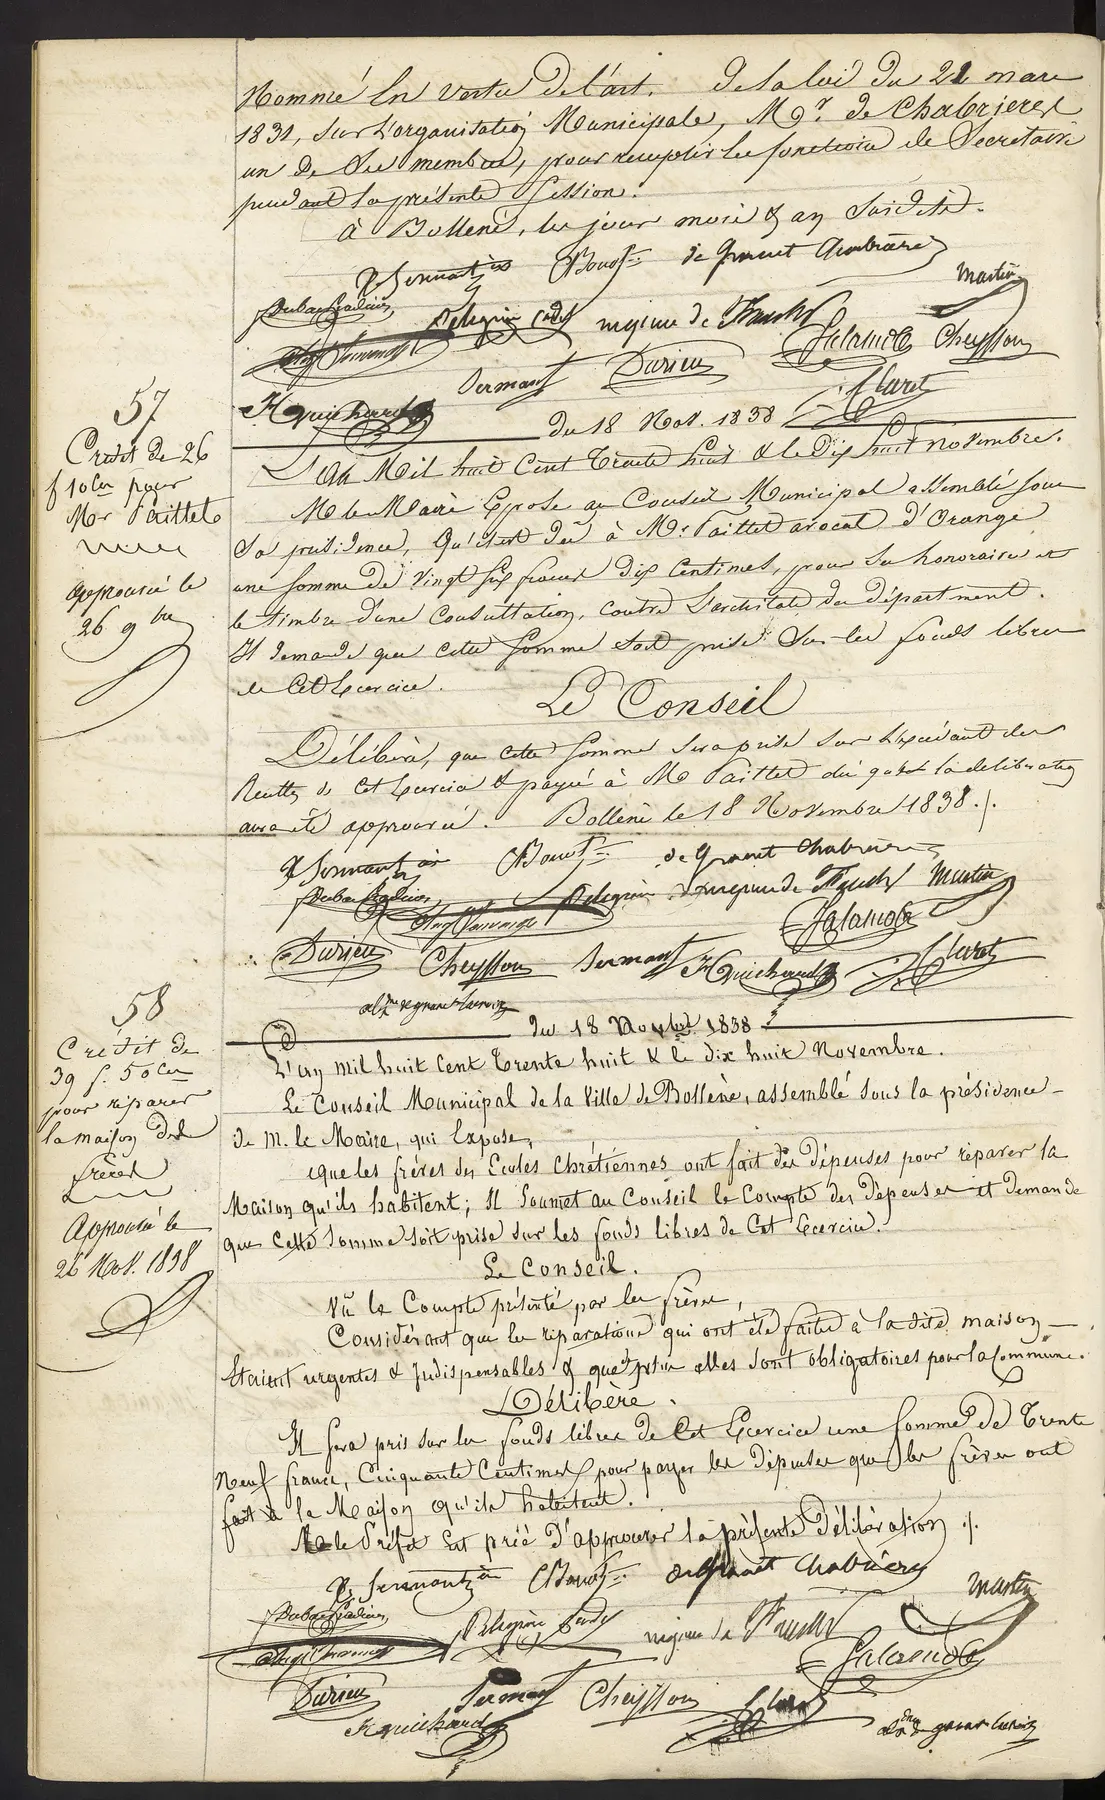 Nommé En vertu de l'art. de la loi du 21 mars
1831, sur l'organisation Municipale, Mr. de Chabrieres
un de ses membres, pour remplir les fonctions de Secretaire
pendant la présente Session.
à Bollène, les jour mois & an susdits.
de Granet Chabrières
Martin
Pelegrin cadet
Durieu
Cheysson
Sermant
Claret
57
Credit de 26
f 10 Cen pour
Mr Taillet
approuvé le
26 9bre
du 18 Nov. 1838
L'an Mil huit Cent Trente huit & le Dix huit novembre.
M le Maire Expose au Conseil Municipal assemblé sous
Sa présidence, Qu'il est dû à Mr Taillet avocat d'Orange
une somme de Vingt Six francs Dix Centimes, pour ses honoraires et
le timbre d'une Consultation, contre l'architecte du département.
Il demande que cette somme soit prise sur les fonds libres
de Cet Exercice.
Le Conseil
Délibère, que cette somme sera prise sur l'Excédant des
Recettes de Cet Exercice & payée à M Taillet dès que la délibération
aura été approuvée. Bollène le 18 Novembre 1838 ./.
de Granet Chabrières
Pelegrin
Martin
Durieu
Cheysson
Sermant
Claret
58
Crédit de
39 f. 50 Cen
pour réparer
la maison des
frères
Approuvé le
26 Nov. 1838
du 18 Novbre 1838
L'an mil huit Cent Trente huit & le dix huit Novembre.
Le Conseil Municipal de la Ville de Bollène, assemblé sous la présidence
de M. le Maire, qui Expose,
que les frères des Ecoles Chrétiennes ont fait des dépenses pour réparer la
Maison qu'ils habitent; Il soumet au Conseil le Compte des dépenses et demande
que cette somme soit prise sur les fonds libres de Cet Exercice.
Le Conseil.
Vu le Compte présenté par les frères,
Considérant que les réparations qui ont été faites à la dite maison
Etaient urgentes & Indispensables & elles sont obligatoires pour la Commune.
Délibère.
Il sera pris sur les fonds libres de Cet Exercice une Somme de Trente
Neuf francs, Cinquante Centimes pour payer les dépenses que les frères ont
fait à la Maison qu'ils habitent.
M le Préfet Est prié d'approuver la présente Délibération ./.
de Granet Chabrières
Martin
Pelegrin cadet
Durieu
Sermant
Cheysson
Claret